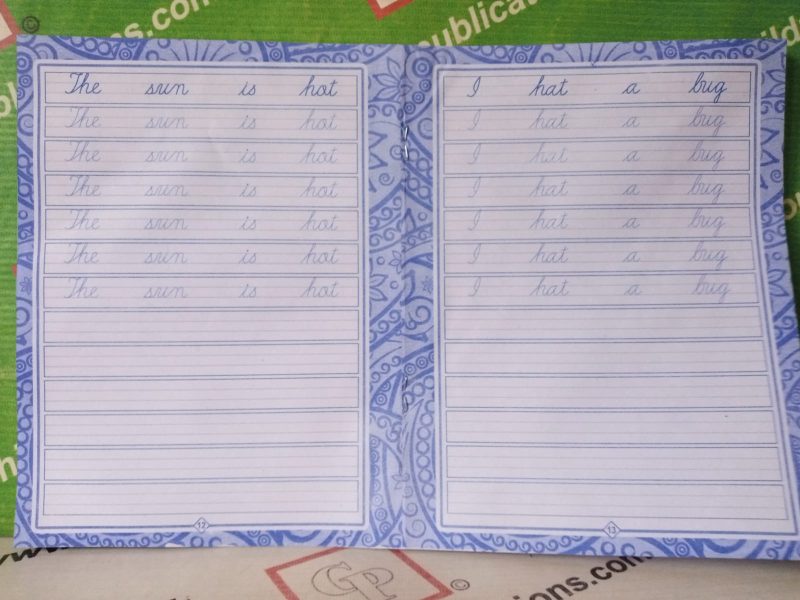 ©
ns.com
publications
The sun is hot
The sun is hot
The sun is hot
The sun is hot
The sun is hot
The sun is hot
The sun is hot
12
I hat a bug
I hat a bug
I hat a bug
I hat a bug
I hat a bug
I hat a bug
I hat a bug
13
GP ©
ons.com